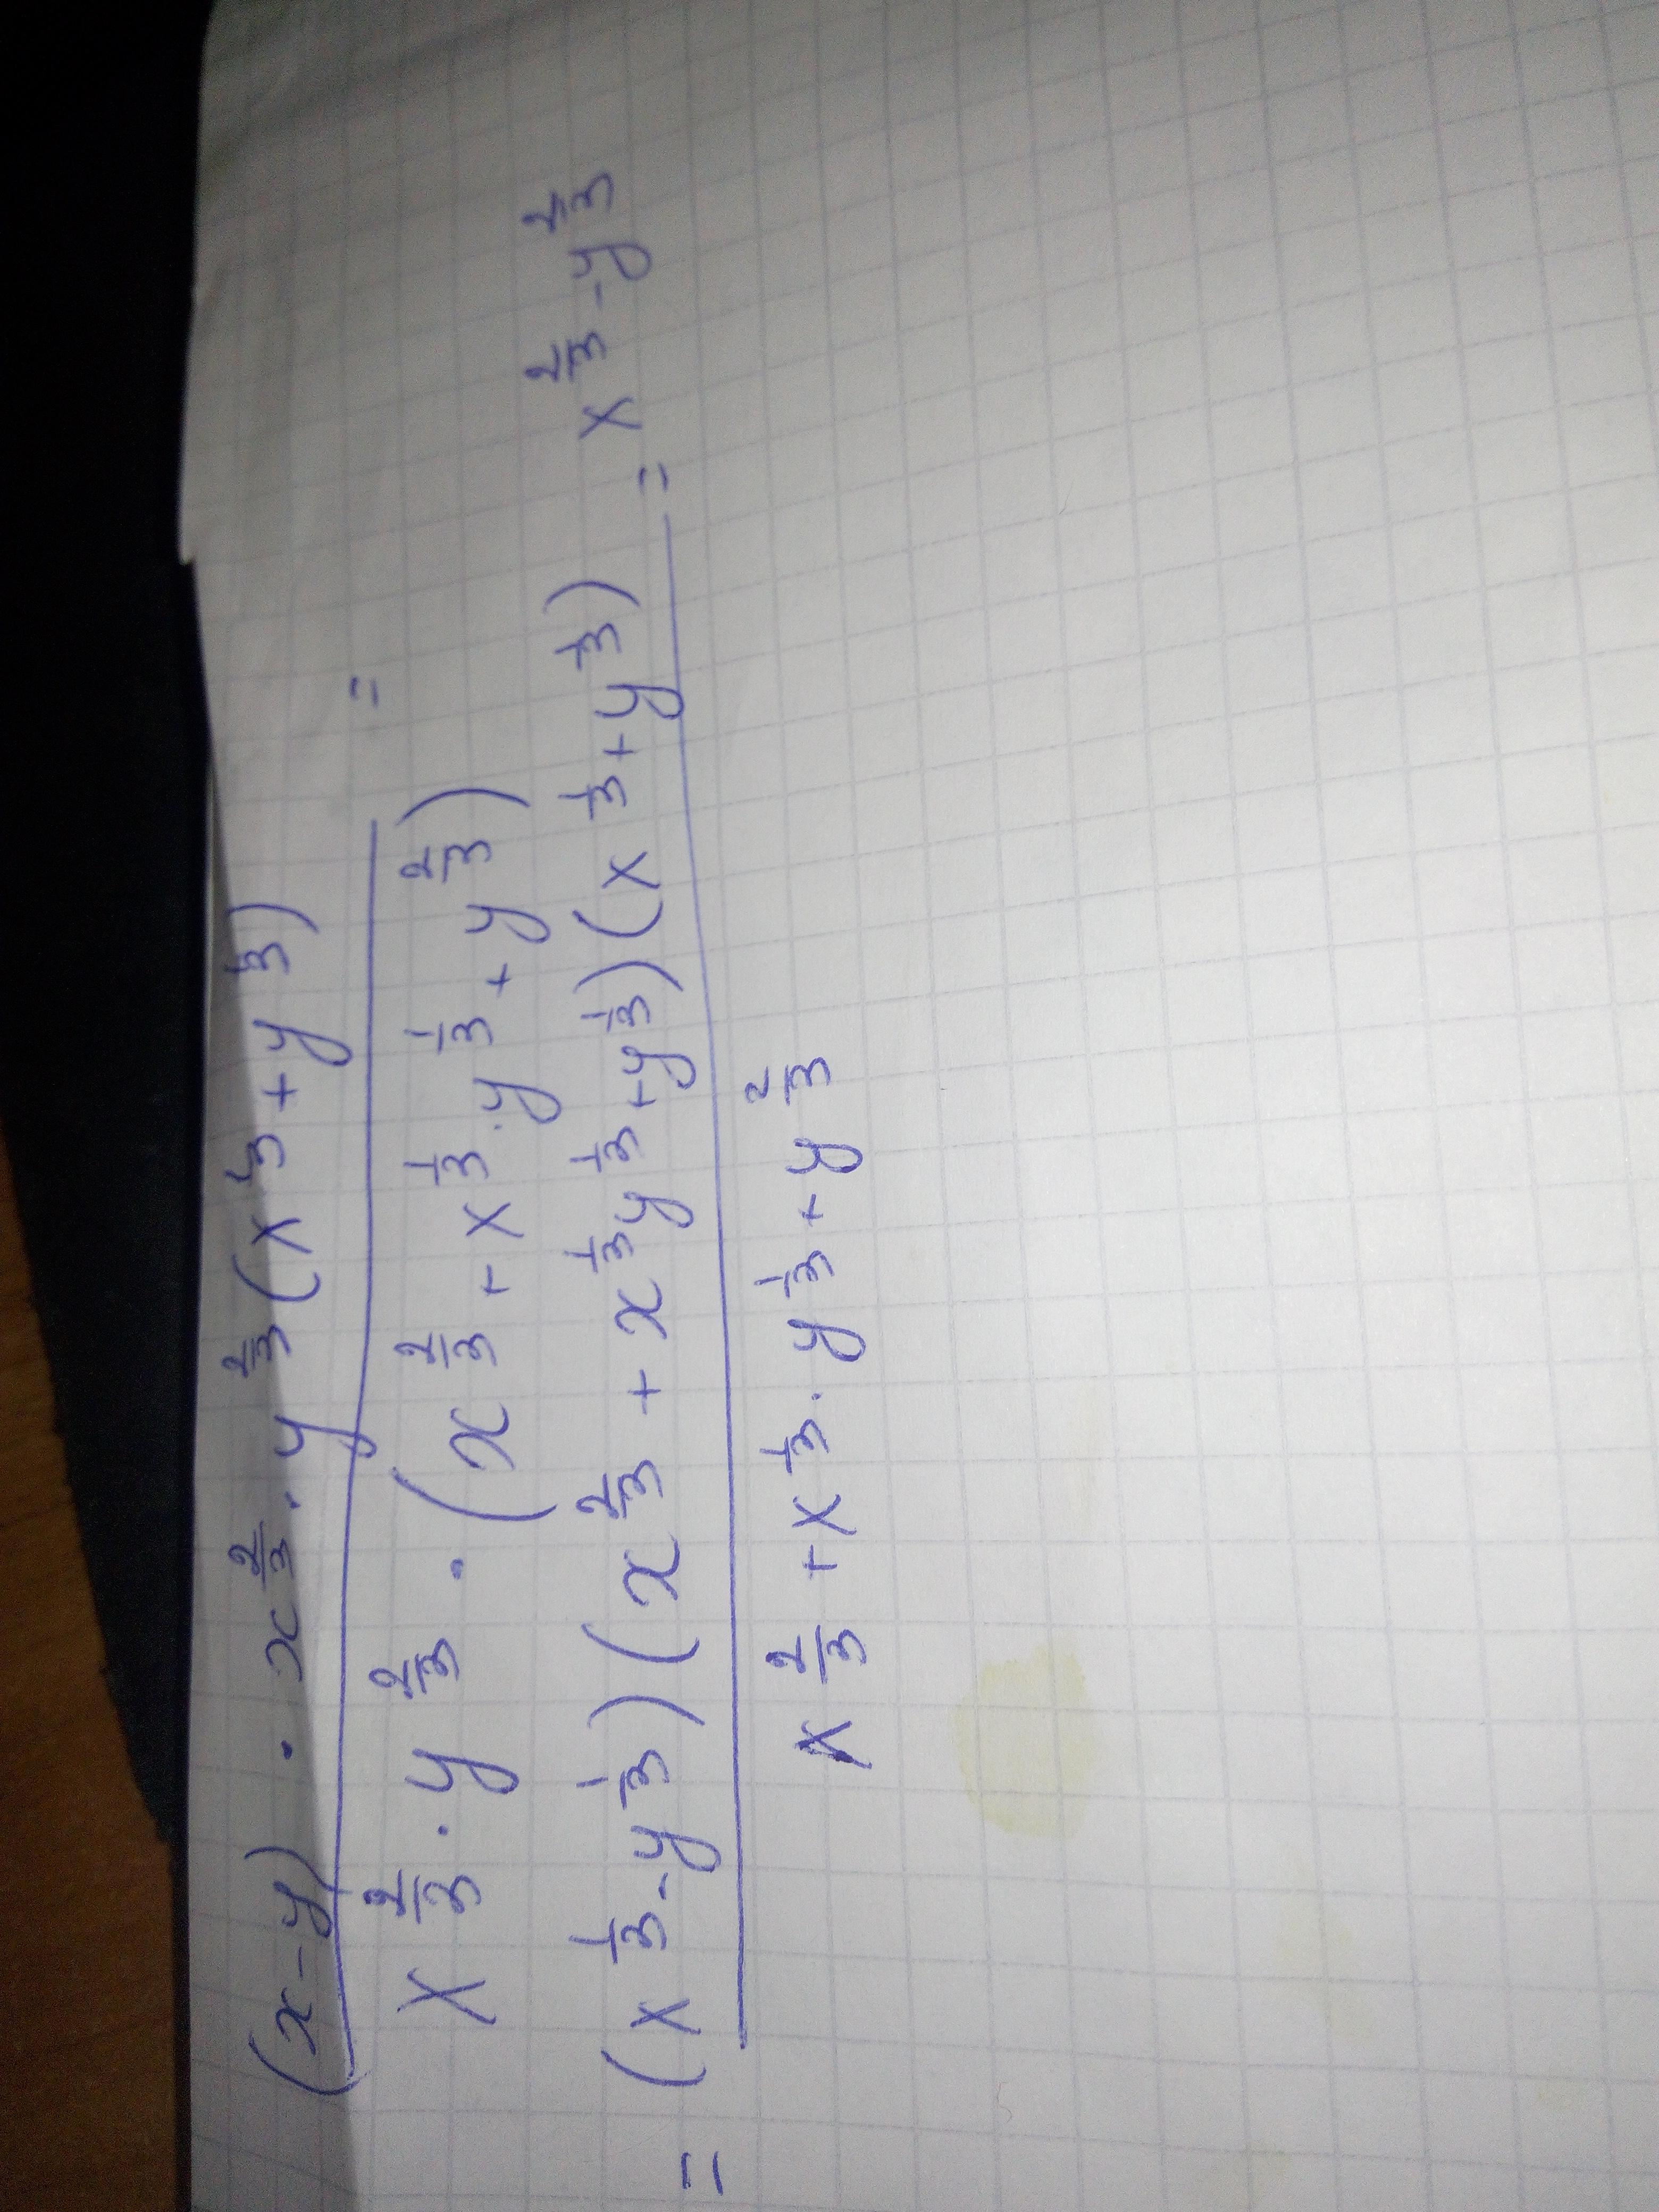 (x-y) · x^(2/3) · y^(2/3) (x^(1/3) + y^(1/3))
x^(2/3) · y^(2/3) · (x^(2/3) + x^(1/3) · y^(1/3) + y^(2/3)) =
= (x^(1/3) - y^(1/3)) (x^(2/3) + x^(1/3) y^(1/3) + y^(1/3)) (x^(1/3) + y^(1/3)) = x^(2/3) - y^(2/3)
x^(2/3) + x^(1/3) · y^(1/3) + y^(2/3)